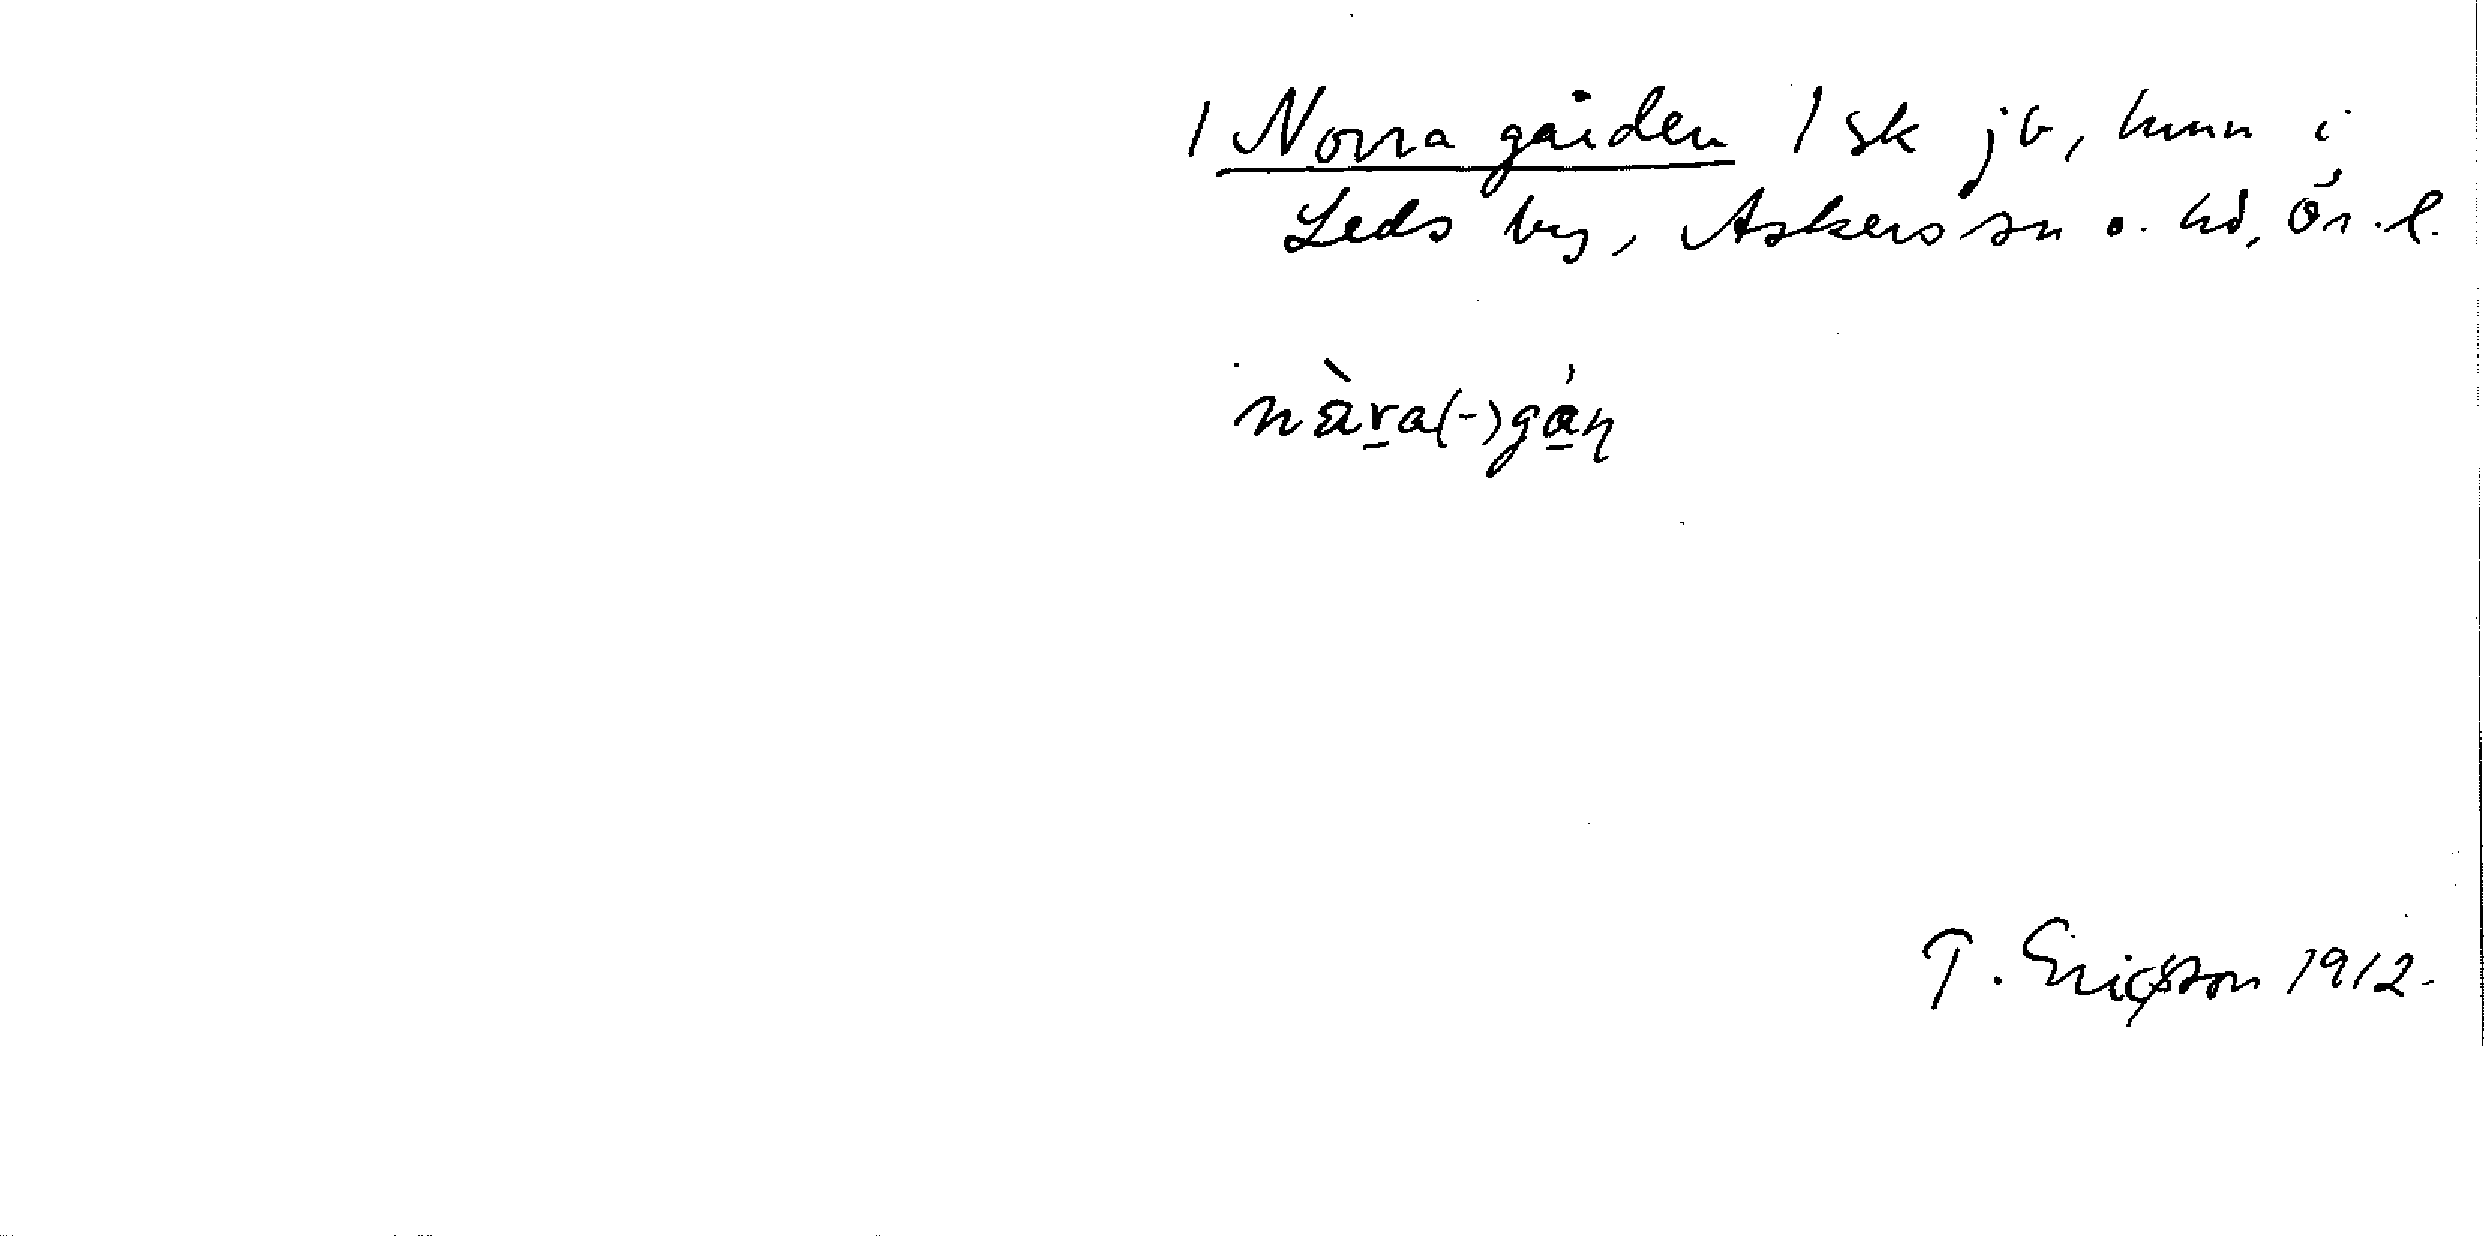 1 Norra gården 1 sk jb, hmn i
Leds by, Askers sn o. hd, Ör. l.
nàra(-)gán
T. Ericsson 1912.